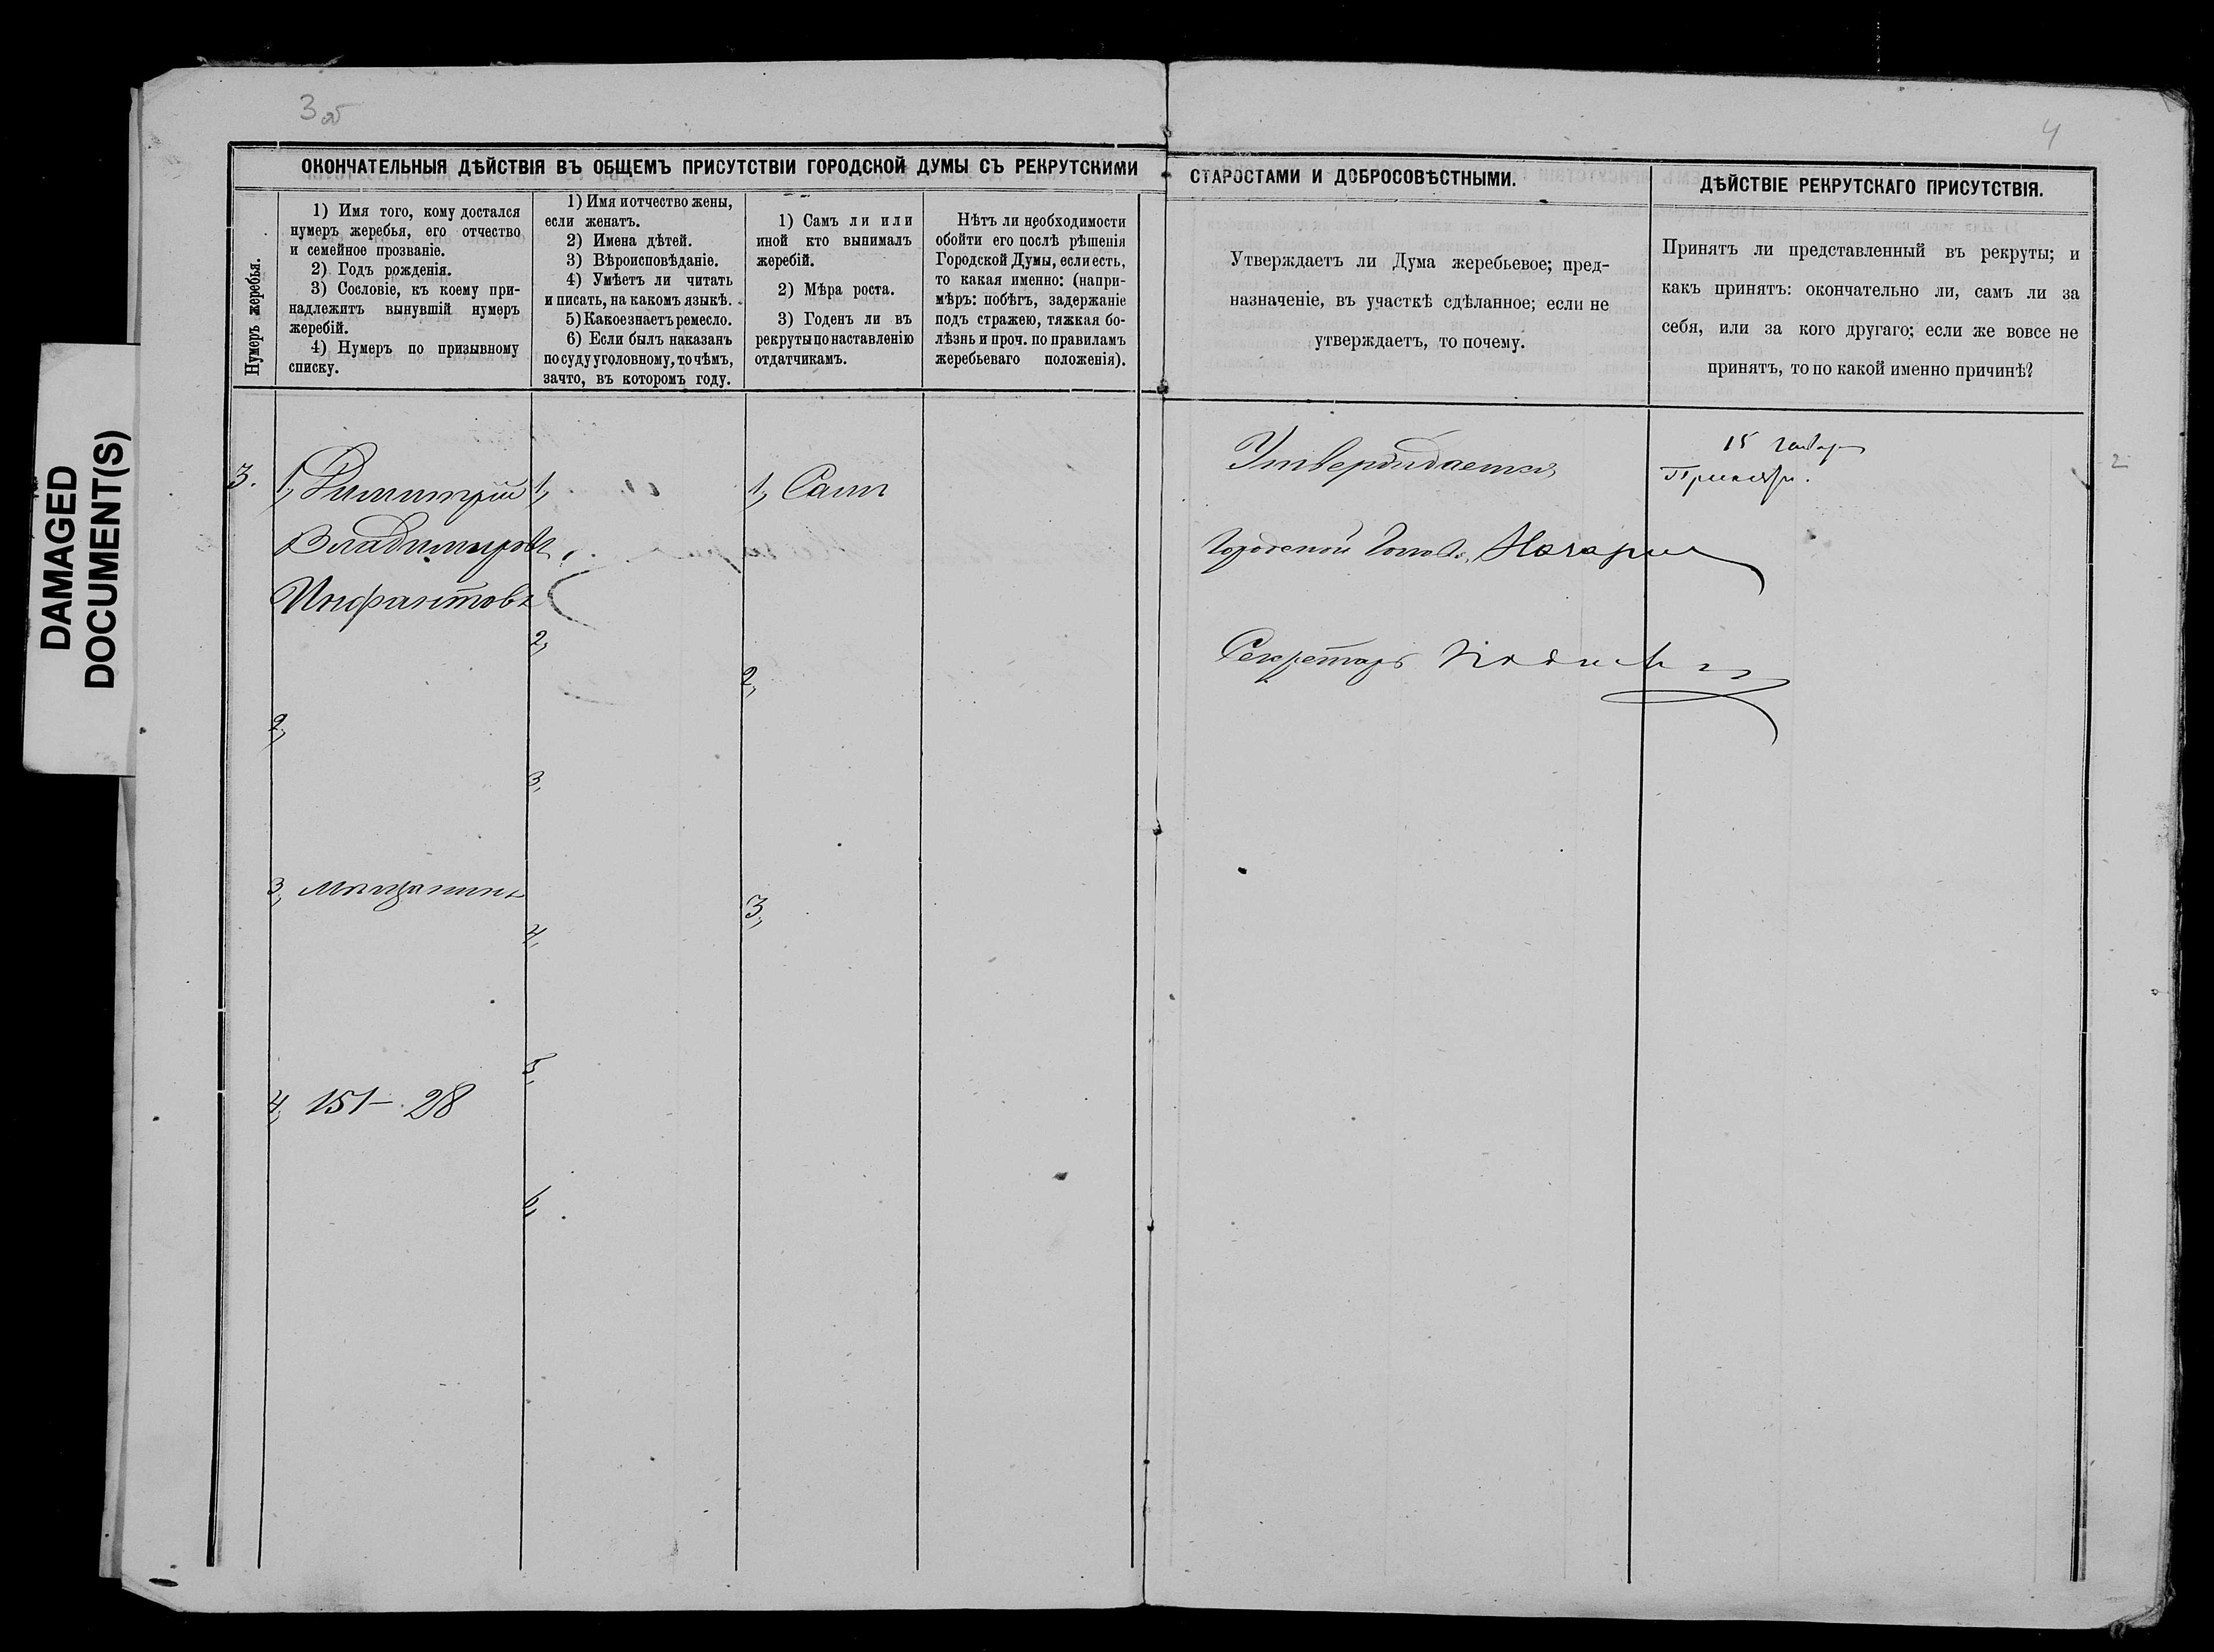 DAMAGED
DOCUMENT(S)
3 об
4
ОКОНЧАТЕЛЬНЫЯ ДѢЙСТВІЯ ВЪ ОБЩЕМЪ ПРИСУТСТВІИ ГОРОДСКОЙ ДУМЫ СЪ РЕКРУТСКИМИ
СТАРОСТАМИ И ДОБРОСОВѢСТНЫМИ.
ДѢЙСТВІЕ РЕКРУТСКАГО ПРИСУТСТВІЯ.
Нумеръ жеребья.
1) Имя того, кому достался
нумеръ жеребья, его отчество
и семейное прозваніе.
2) Годъ рожденія.
3) Сословіе, къ коему при-
надлежитъ вынувшій нумеръ
жеребій.
4) Нумеръ по призывному
списку.
1) Имя и отчество жены,
если женатъ.
2) Имена дѣтей.
3) Вѣроисповѣданіе.
4) Умѣетъ ли читать
и писать, на какомъ языкѣ.
5) Какое знаетъ ремесло.
6) Если былъ наказанъ
по суду уголовному, то чѣмъ,
за что, въ которомъ году.
1) Самъ ли или
иной кто вынималъ
жеребій.
2) Мѣра роста.
3) Годенъ ли въ
рекруты по наставленію
отдатчикамъ.
Нѣтъ ли необходимости
обойти его послѣ рѣшенія
Городской Думы, если есть,
то какая именно: (напри-
мѣръ: побѣгъ, задержаніе
подъ стражею, тяжкая бо-
лѣзнь и проч. по правиламъ
жеребьеваго положенія).
Утверждаетъ ли Дума жеребьевое; пред-
назначеніе, въ участкѣ сдѣланное; если не
утверждаетъ, то почему.
Принятъ ли представленный въ рекруты; и
какъ принятъ: окончательно ли, самъ ли за
себя, или за кого другаго; если же вовсе не
принятъ, то по какой именно причинѣ?
3.
1, Димитрій
Владимировъ
Инфантовъ
2,
3, мѣщанинъ
4, 151 – 28
1,
2,
3,
4,
5,
6,
1, Самъ
2,
3,
Утверждается
Городской Голова
Секретарь
15 Января
Принятъ.
2